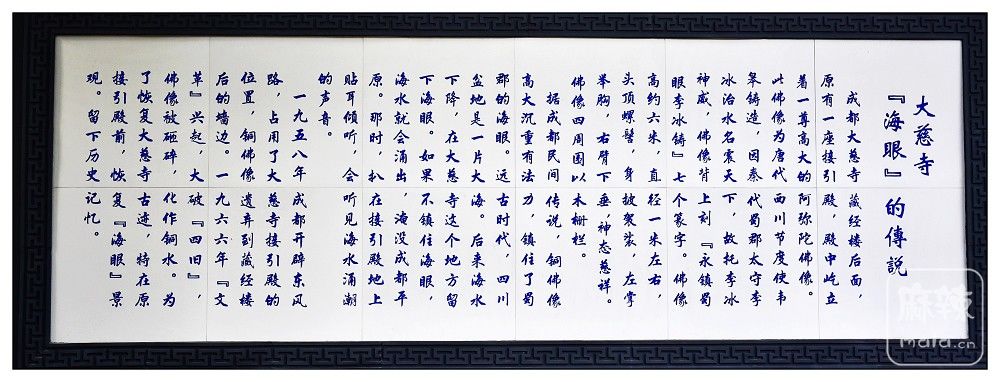 大慈寺
『海眼』的傳説
成都大慈寺藏经楼后面，
原有一座接引殿，殿中屹立
着一尊高大的阿弥陀佛像。
此佛像为唐代西川节度使韦
皋铸造，因秦代蜀郡太守李
冰治水名震天下，故托李冰
神威，佛像背上刻『永镇蜀
眼李冰铸』七个篆字。佛像
高约六米，直径一米左右，
头顶螺髻，身披袈裟，左掌
举胸，右臂下垂，神态慈祥。
佛像四周围以木栅栏。
据成都民间传说，铜佛像
高大沉重有法力，镇住了蜀
郡的海眼。远古时代，四川
盆地是一片大海。后来海水
下降，在大慈寺这个地方留
下海眼。如果不镇住海眼，
海水就会涌出，淹没成都平
原。那时，扒在接引殿地上
贴耳倾听，会听见海水涌潮
的声音。
一九五八年成都开辟东风
路，占用了大慈寺接引殿的
位置，铜佛像遗弃到藏经楼
后的墙边。一九六六年『文
革』兴起，大破『四旧』，
佛像被砸碎，化作铜水。为
了恢复大慈寺古迹，特在原
接引殿前，恢复『海眼』景
观。留下历史记忆。
麻辣
mala.cn